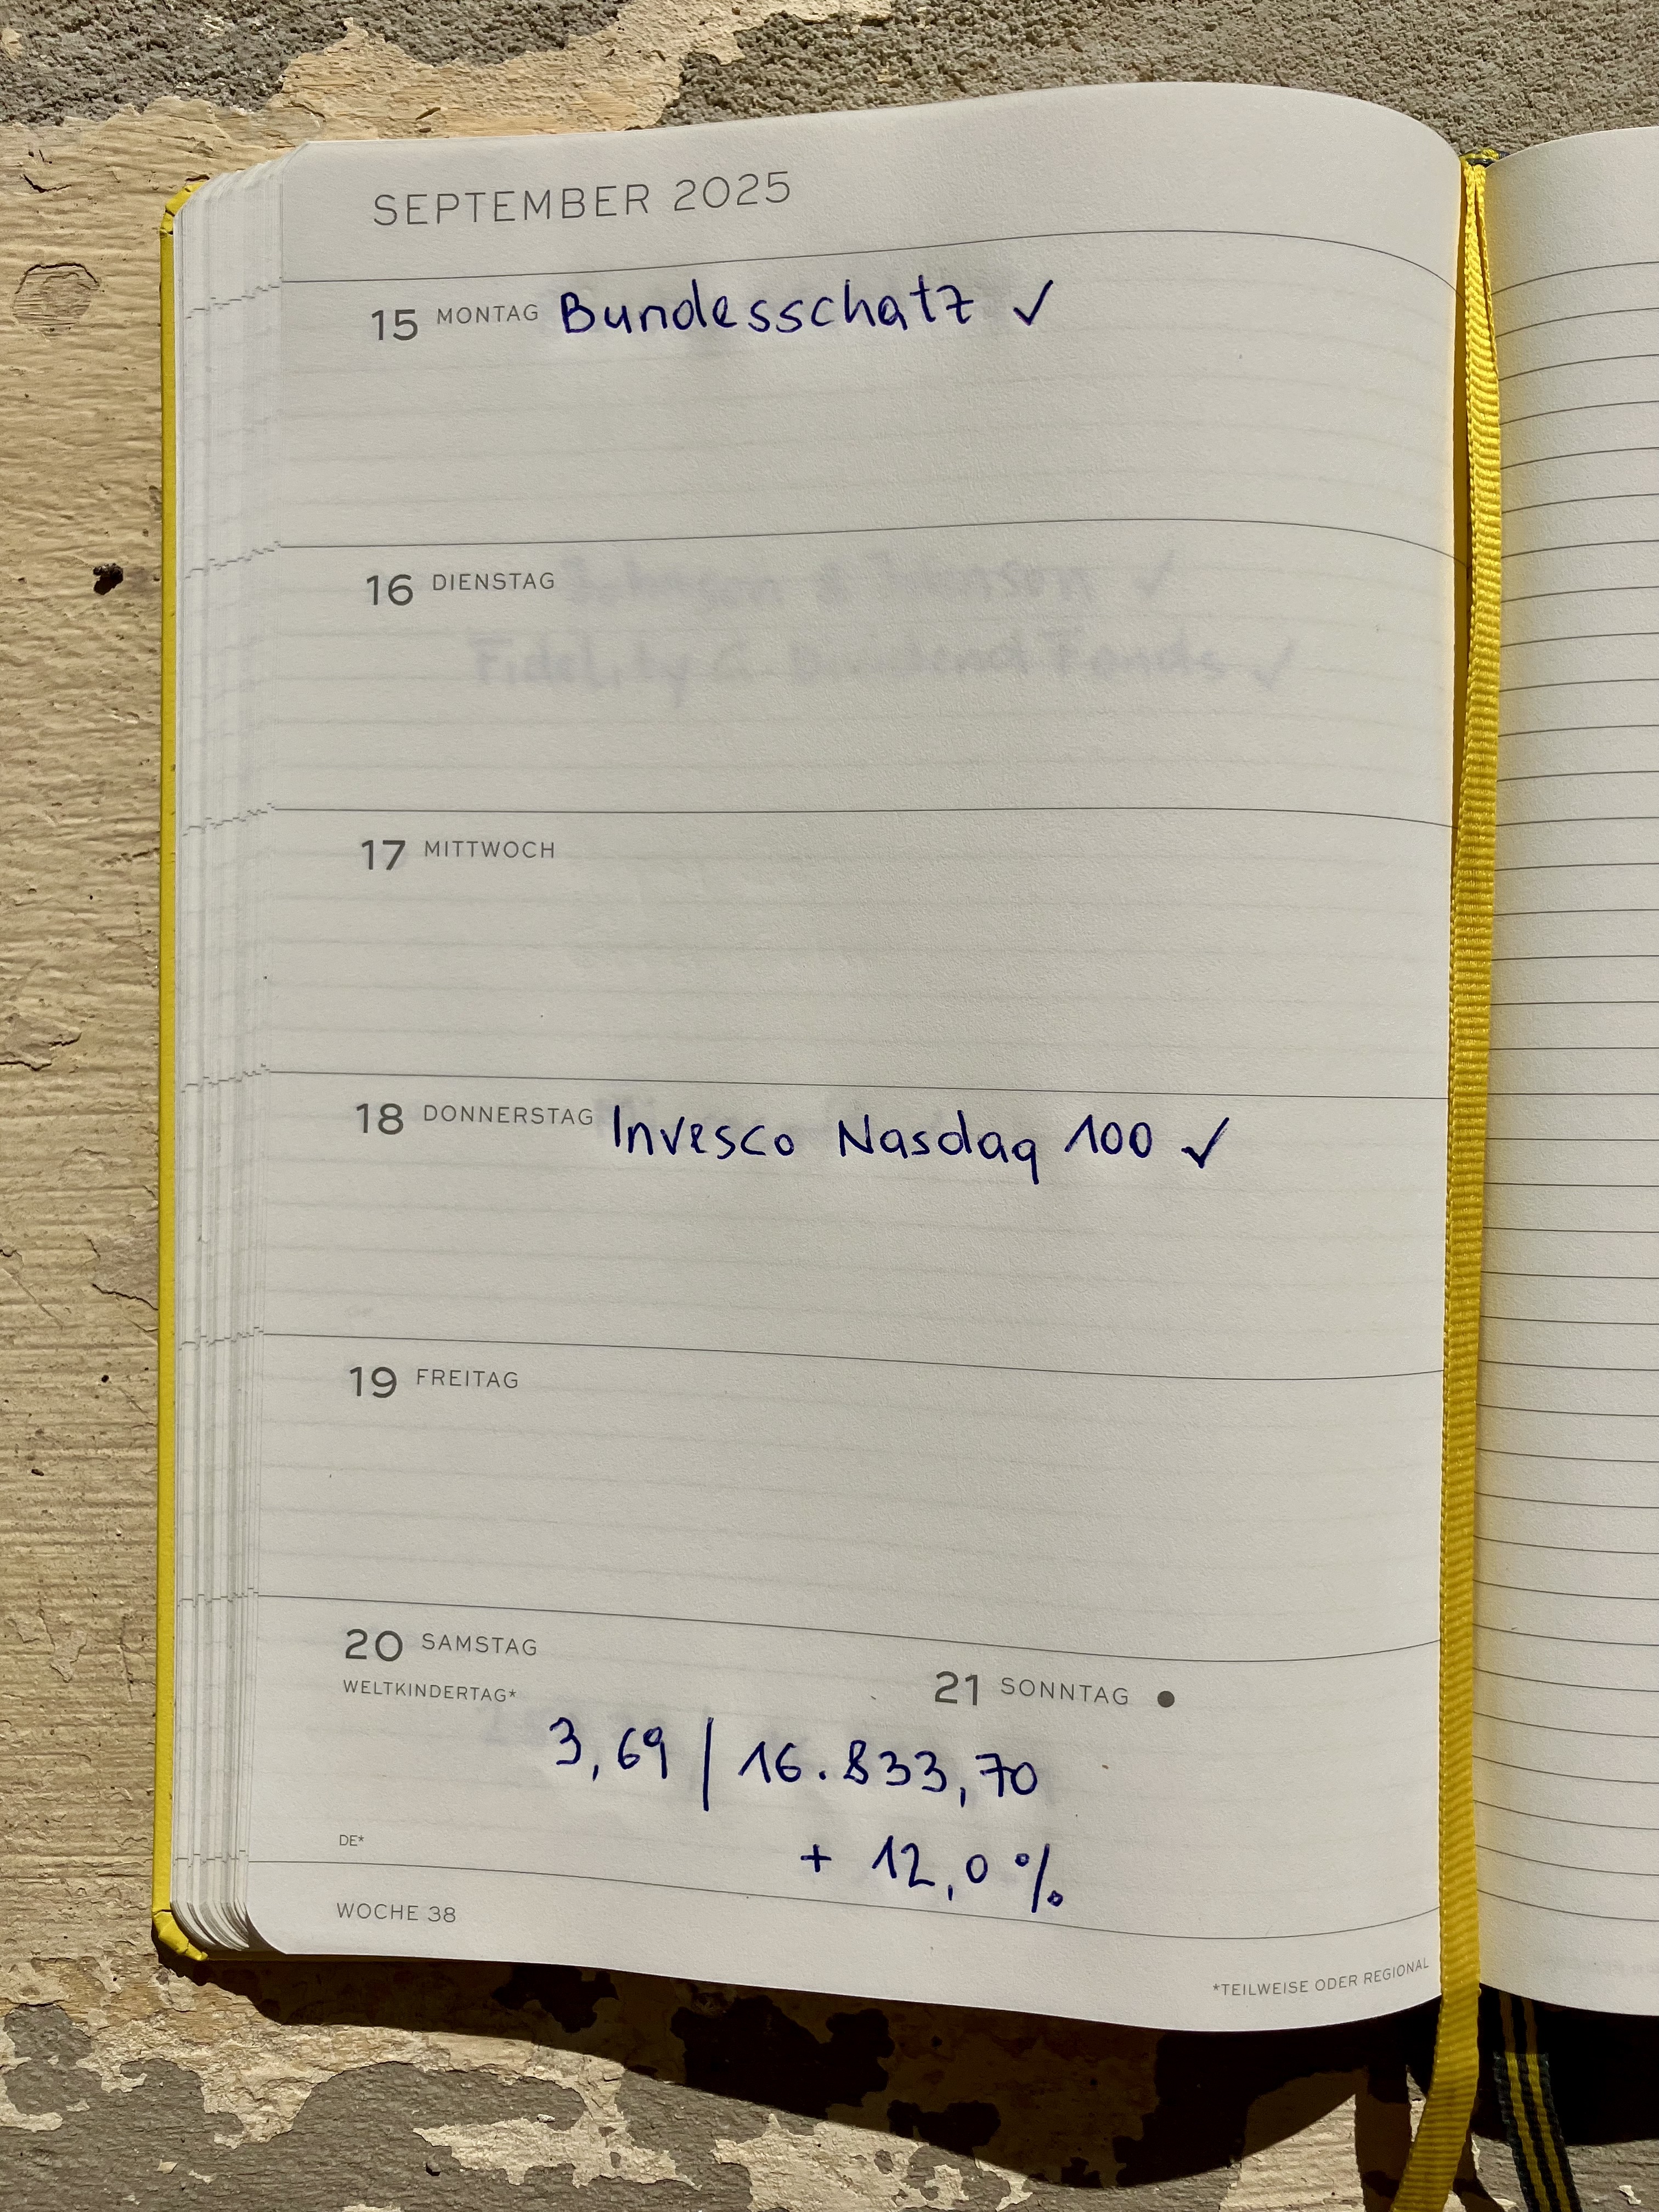 SEPTEMBER 2025
15 MONTAG Bundesschatz ✓
16 DIENSTAG
Fidelity
17 MITTWOCH
18 DONNERSTAG Invesco Nasdaq 100 ✓
19 FREITAG
20 SAMSTAG
WELTKINDERTAG*
21 SONNTAG
3,69 | 16.833,70
+ 12,0 %
DE*
WOCHE 38
*TEILWEISE ODER REGIONAL